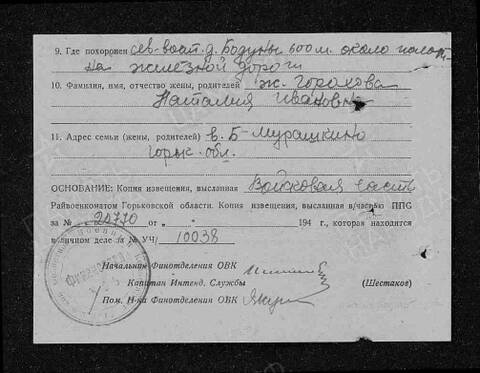 9. Где похоронен сев-вост. д. Бодуны 600 м. около полот-
на железной дороги
10. Фамилия, имя, отчество жены, родителей ж. Горохова
Наталия Ивановна
11. Адрес семьи (жены, родителей) в. Б-Мурашкино
Горьк. обл.
ОСНОВАНИЕ: Копия извещения, высланная Войсковая часть
Райвоенкоматом Горьковской области. Копия извещения, высланная в/частью ППС
за № 20770 от " " 194 г., которая находится
в личном деле за № УЧ/ 10038
Начальник Финотделения ОВК
Капитан Интенд. Службы (Шестаков)
Пом. Н-ка Финотделения ОВК